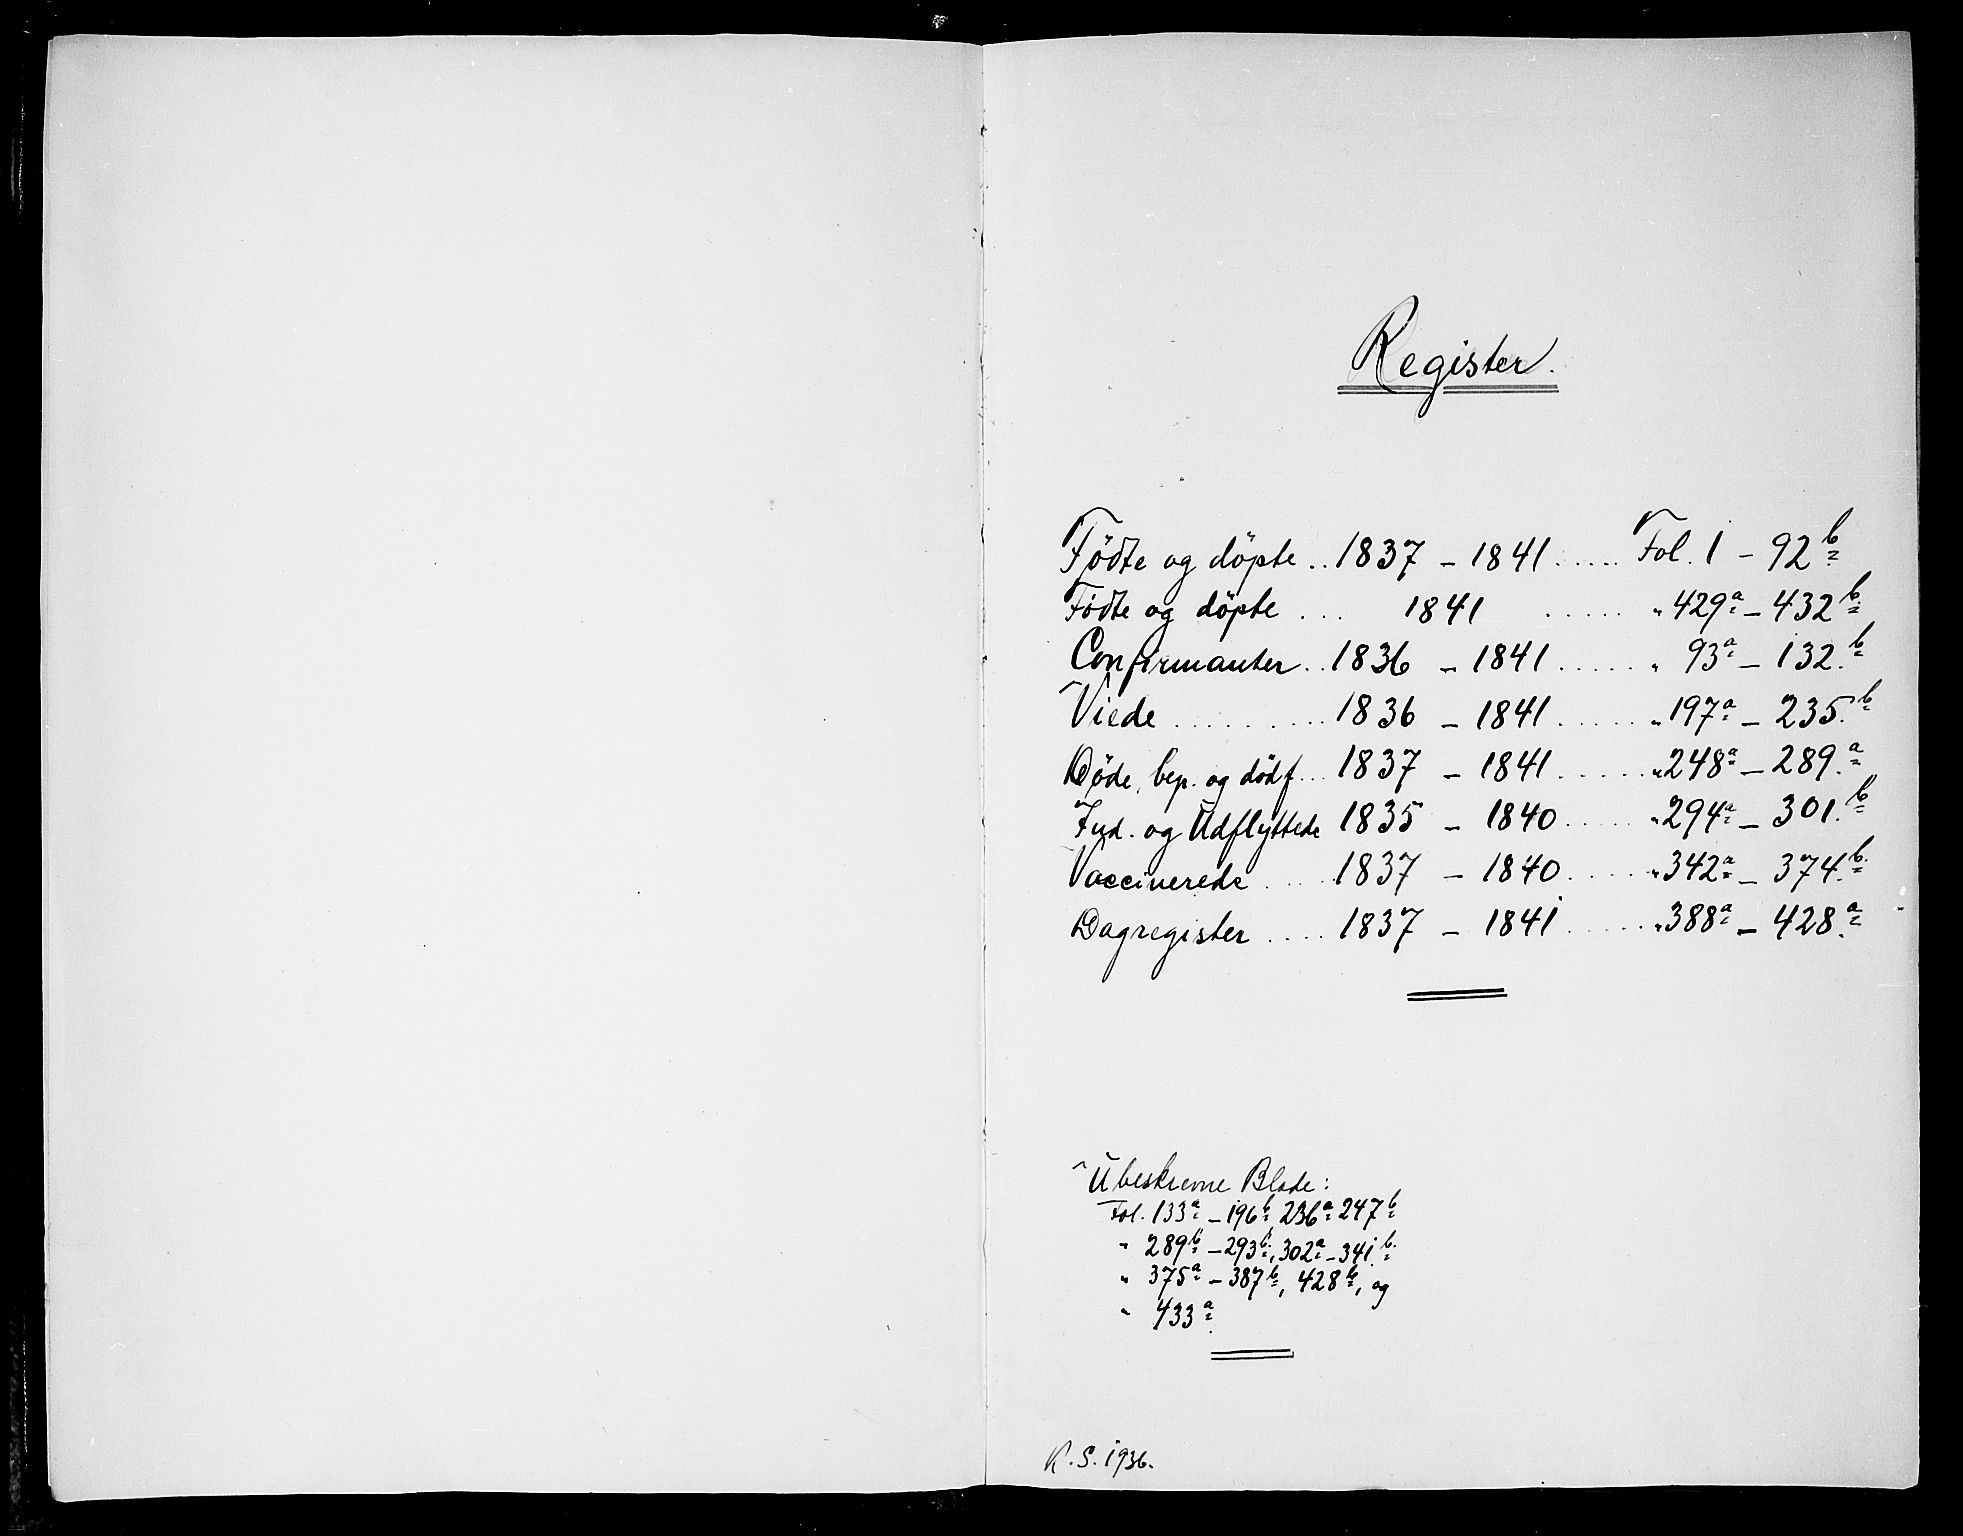 Register.
Födte og döpte .. 1837 - 1841 ..... Fol. 1 - 92b
Födte og döpte ... 1841 ..... " 429a - 432b
Confirmanter .. 1836 - 1841 ..... " 93a - 132.b
Viede ......... 1836 - 1841 ..... " 197a - 235.b
Döde, bep. og dödf... 1837 - 1841 ..... " 248a - 289.a
Ind. og Udflyttede 1835 - 1840 ..... " 294a - 301.b
Vaccinerede .... 1837 - 1840 ..... " 342a - 374.b
Dagregister .... 1837 - 1841 ..... " 388a - 428.a
Ubeskrevne Blade:
Fol. 133a - 196b, 236a 247b
" 289b - 293b, 302a - 341.b
" 375a - 387b, 428b, og
" 433a.
K. S. 1936.